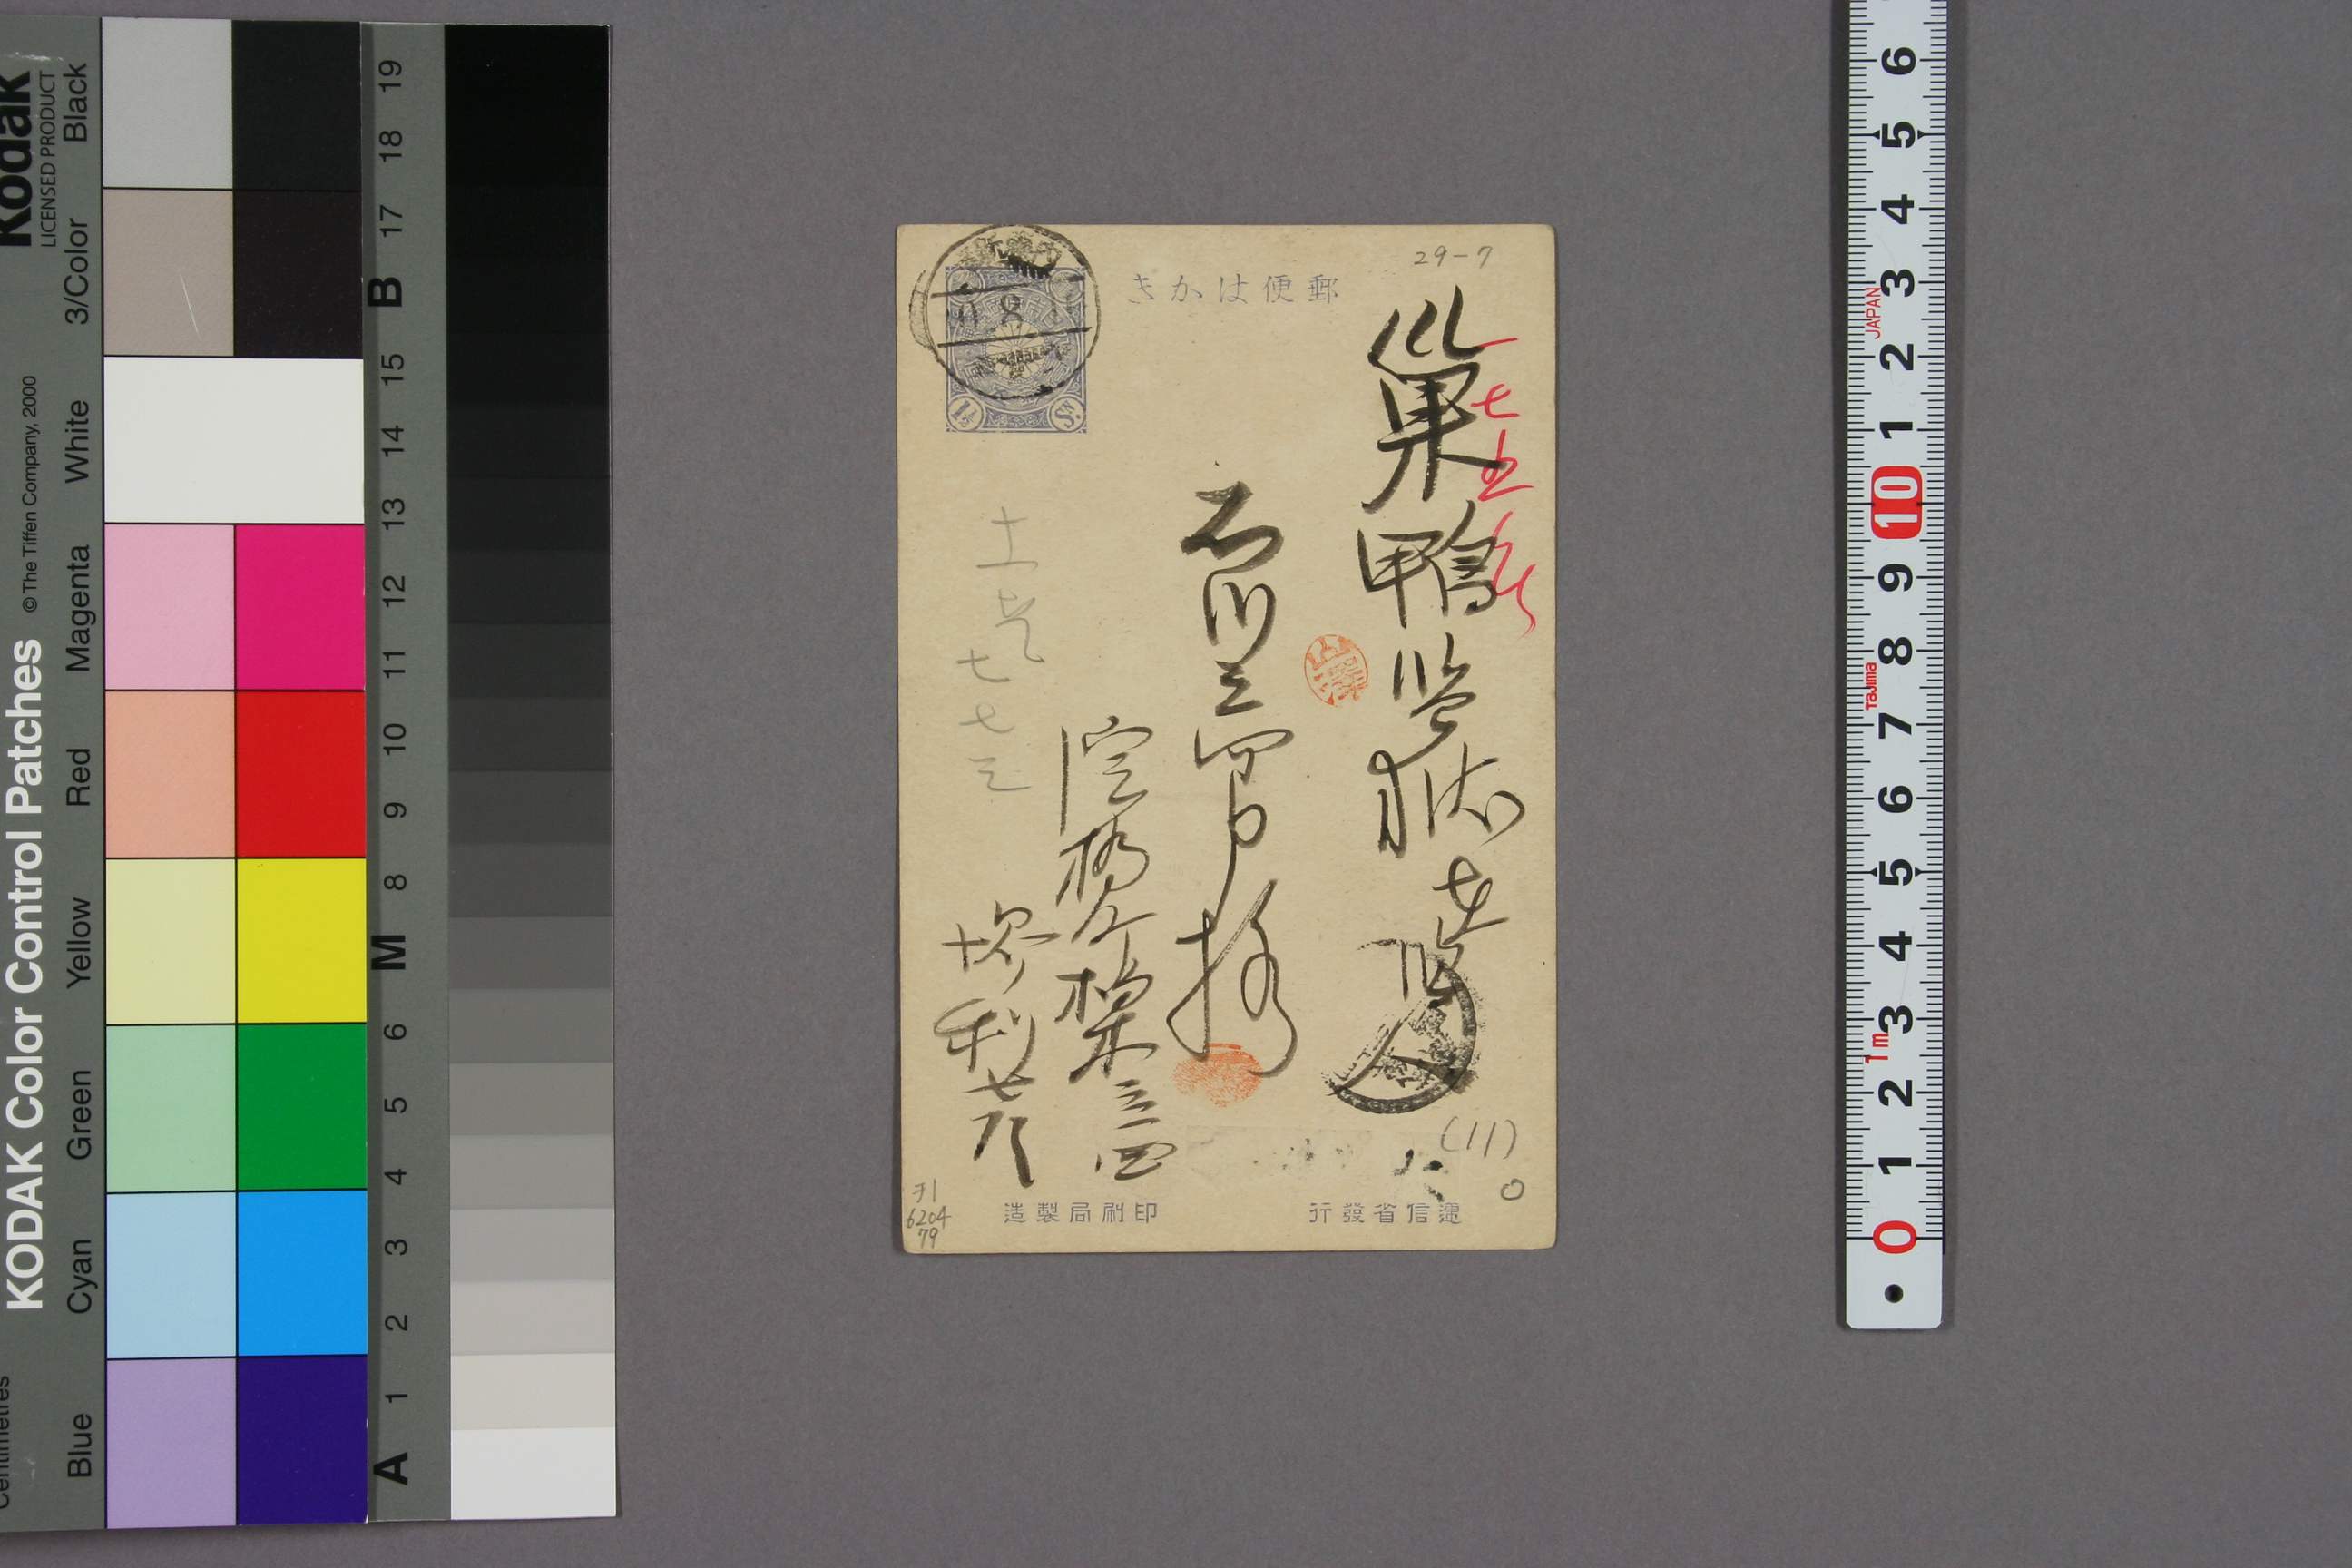 KODAK Color Control Patches
© The Tiffen Company, 2000
Kodak
LICENSED PRODUCT
Centimetres
Blue
Cyan
Green
Yellow
Red
Magenta
White
3/Color
Black
A
1
2
3
4
5
6
M
8
9
10
11
12
13
14
15
B
17
18
19
29-7
郵便はかき
1½
Sn.
巣鴨監獄
石川三四郎様
淀橋介
三四
堺利彦
七七三
(11)
ヲ1
6204
79
逓信省發行
印刷局製造
6
5
4
3
2
1
10
9
8
7
6
5
4
3
2
1
0
JAPAN
Tajima
1m